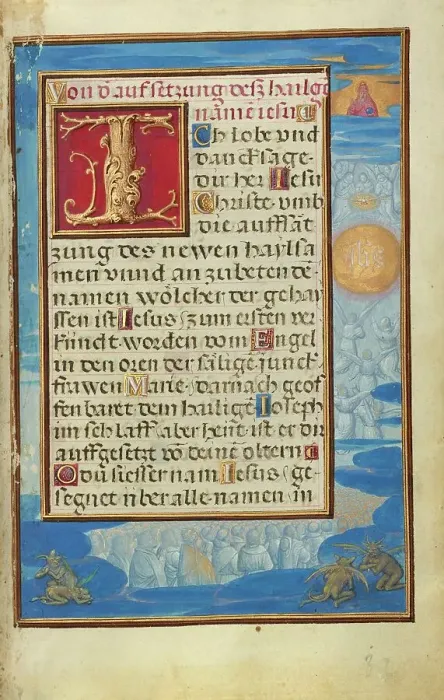 Von d̄ aufsetzung desz hailgē
namē iesu
I Ch lobe vnd
danck sage
dir her Iesu
Christe vmb
die auffsat
zung des newen haylsa
men vnnd an zubetende
namen wölcher der gehay
ssen ist Iesus / zum ersten ver
kündt worden vom Engel
in den oren der sälige junck
frawen Marie / darnach geof
fenbaret dem hailigē Ioseph
im schlaff / aber heüt ist er dir
auffgesetzt vō deinē öltern
O du süesser nam Iesus / ge
segnet über alle namen / in
ihs